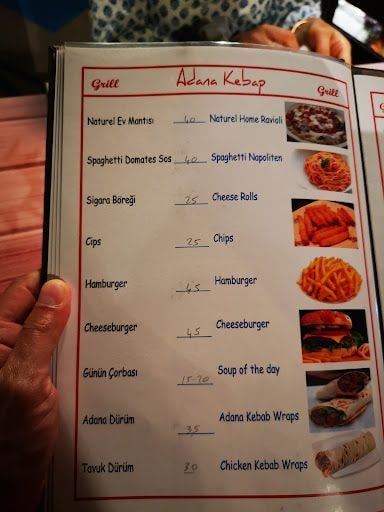 Grill Adana Kebap Grill
Naturel Ev Mantısı 40 Naturel Home Ravioli
Spaghetti Domates Sos 40 Spaghetti Napoliten
Sigara Böreği 25 Cheese Rolls
Cips 25 Chips
Hamburger 45 Hamburger
Cheeseburger 45 Cheeseburger
Günün Çorbası 15-20 Soup of the day
Adana Dürüm 35 Adana Kebab Wraps
Tavuk Dürüm 30 Chicken Kebab Wraps